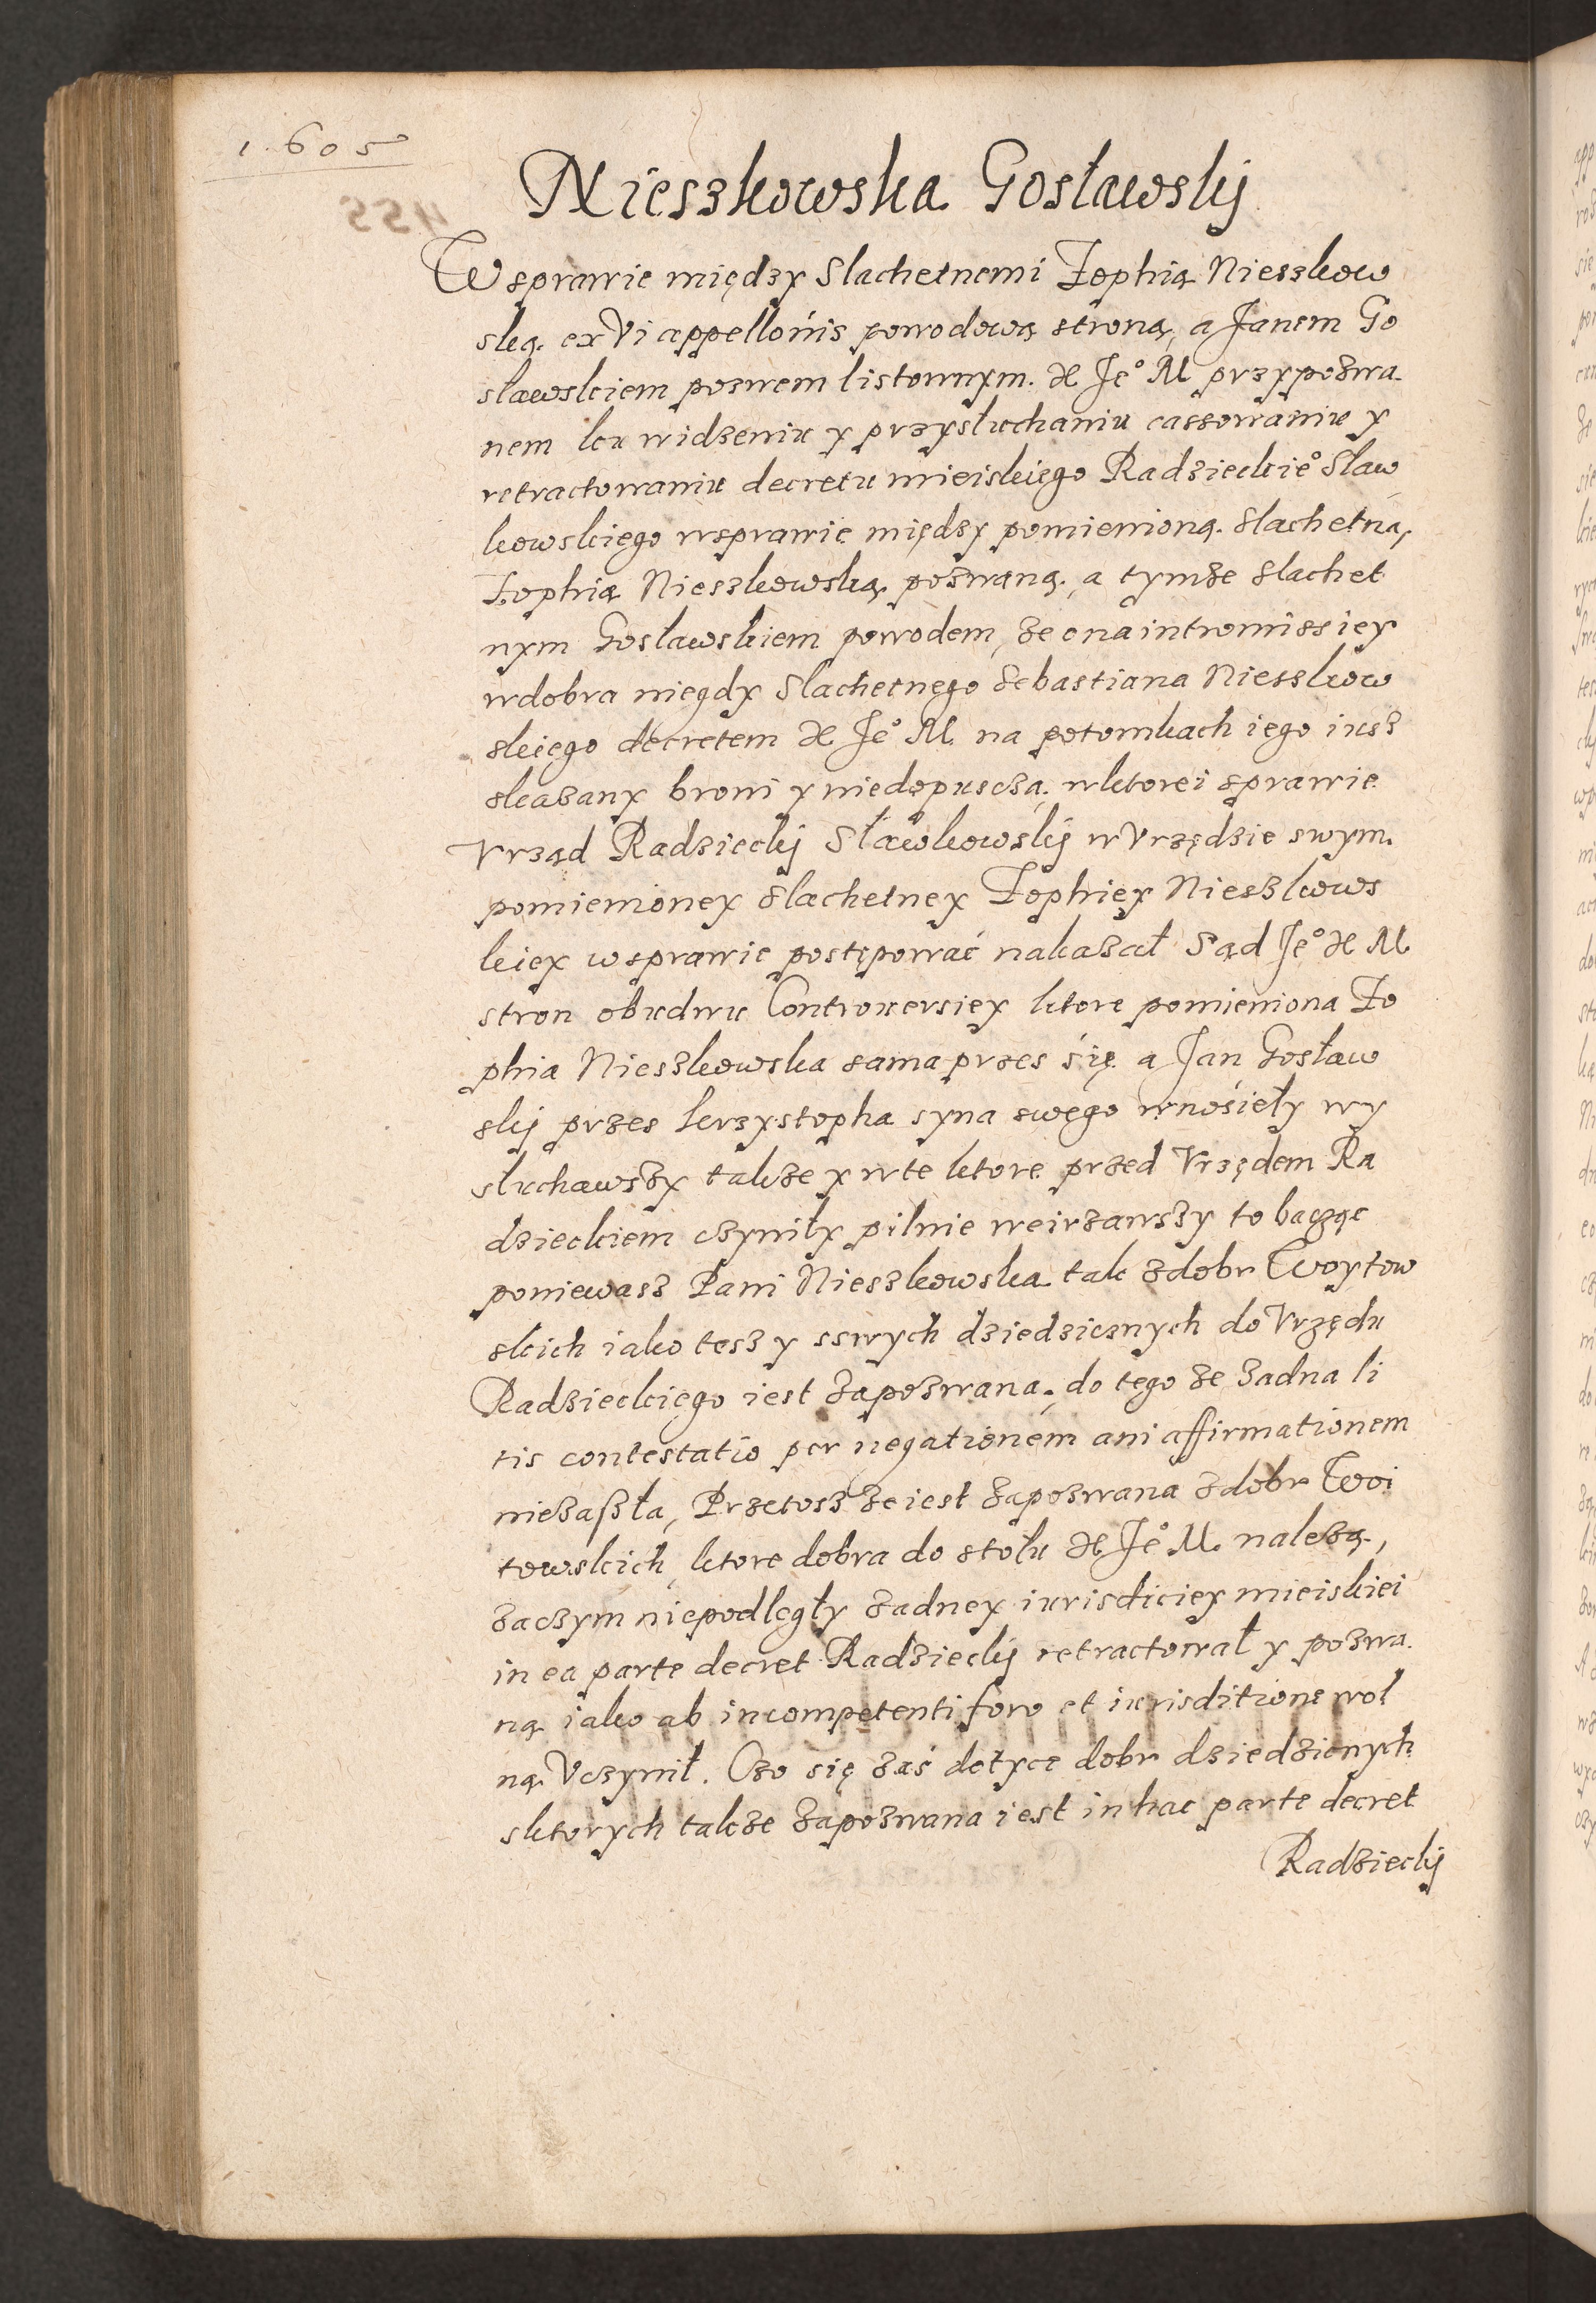 1.605
Nieszkowska Gosławskÿ
W sprawie między Slachetnemi Zophią Nieszkow
ską. ex Vi appellőnis powodową stroną, a Janem Go
sławskiem poswem listownym. X Je° M przypozwa
nem ku widzeniu y przysłuchaniu cassowaniu y
retractowaniu decretu mieiskiego Radzieckie° Slaw
kowskiego wsprawie między pomienioną. Slachetną,
Zophią Nieszkowską, pozwaną, a tymże Slachet
nym Gosławskiem powodem, że ona intromissiey
wdobra niegdy Slachetnego Sebastiana Nieszkow
skiego decretem X Je° M. na potomkach iego iusz
skazany broni y niedopuscza, wktorei sprawie
Vrząd Radzieckÿ Sławkowskÿ w Vrzędzie swym.
pomienioney Slachetney Zophiey Nieszkows
kiey wsprawie postępować nakazał Sąd Je° X M
stron obudwu Controuersiey ktore pomieniona Zo
phia Nieszkowska sama przes się a Jan Gosław
skÿ przes krzystopha syna swego wnosieły wy
słuchawszy także y wte ktore przed Vrzędem Ra
dzieckiem czyniły pilnie weirzawszy to bacząc
poniewasz Pani Nieszkowska tak zdobr Woytow
skich iako tesz y sswych dziedzicznych do Vrzędu
Radzieckiego iest zapozwana, do tego że żadna li
tis contestatio per negationem ani affirmationem
niezaszła, Przetosz że iest zapozwana zdobr Woi
towskich, ktore dobra do stołu X Je° M. należą,
zaczym niepodległy żadney iurisdiciey mieiskiei
in ea parte decret Radzieckÿ retractował y pozwa
ną iako ab incompetenti foro et iurisditione wol
ną Vczynił. Czo się zaś dotyce dobr dziedzicnych
sktorych także zapozwana iest in hac parte decret
Radzieckÿ